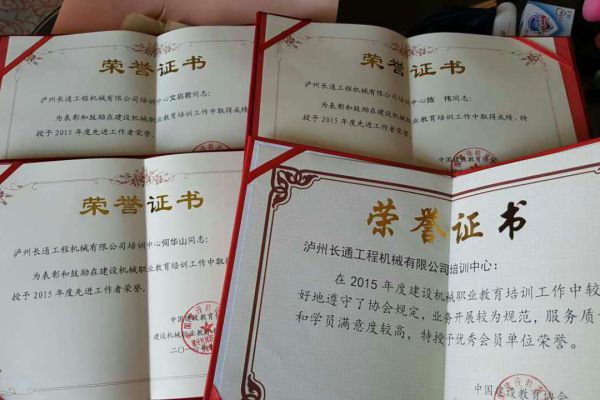 荣誉证书
泸州长通工程机械有限公司培训中心文启君同志:
为表彰和鼓励在建设机械职业教育培训工作中取得成绩,
授予2015年度先进工作者荣誉。
荣誉证书
泸州长通工程机械有限公司培训中心陈 伟同志:
为表彰和鼓励在建设机械职业教育培训工作中取得成绩,特
授予2015年度先进工作者荣誉。
中国建设教育协会
荣誉证书
泸州长通工程机械有限公司培训中心何华山同志:
为表彰和鼓励在建设机械职业教育培训工作中取得成绩,特
授予2015年度先进工作者荣誉。
中国建设教育
建设机械职业教
二〇一
荣誉证书
泸州长通工程机械有限公司培训中心:
在2015年度建设机械职业教育培训工作中较
好地遵守了协会规定,业务开展较为规范,服务质
和学员满意度较高,特授予优秀会员单位荣誉。
中国建设教育协会